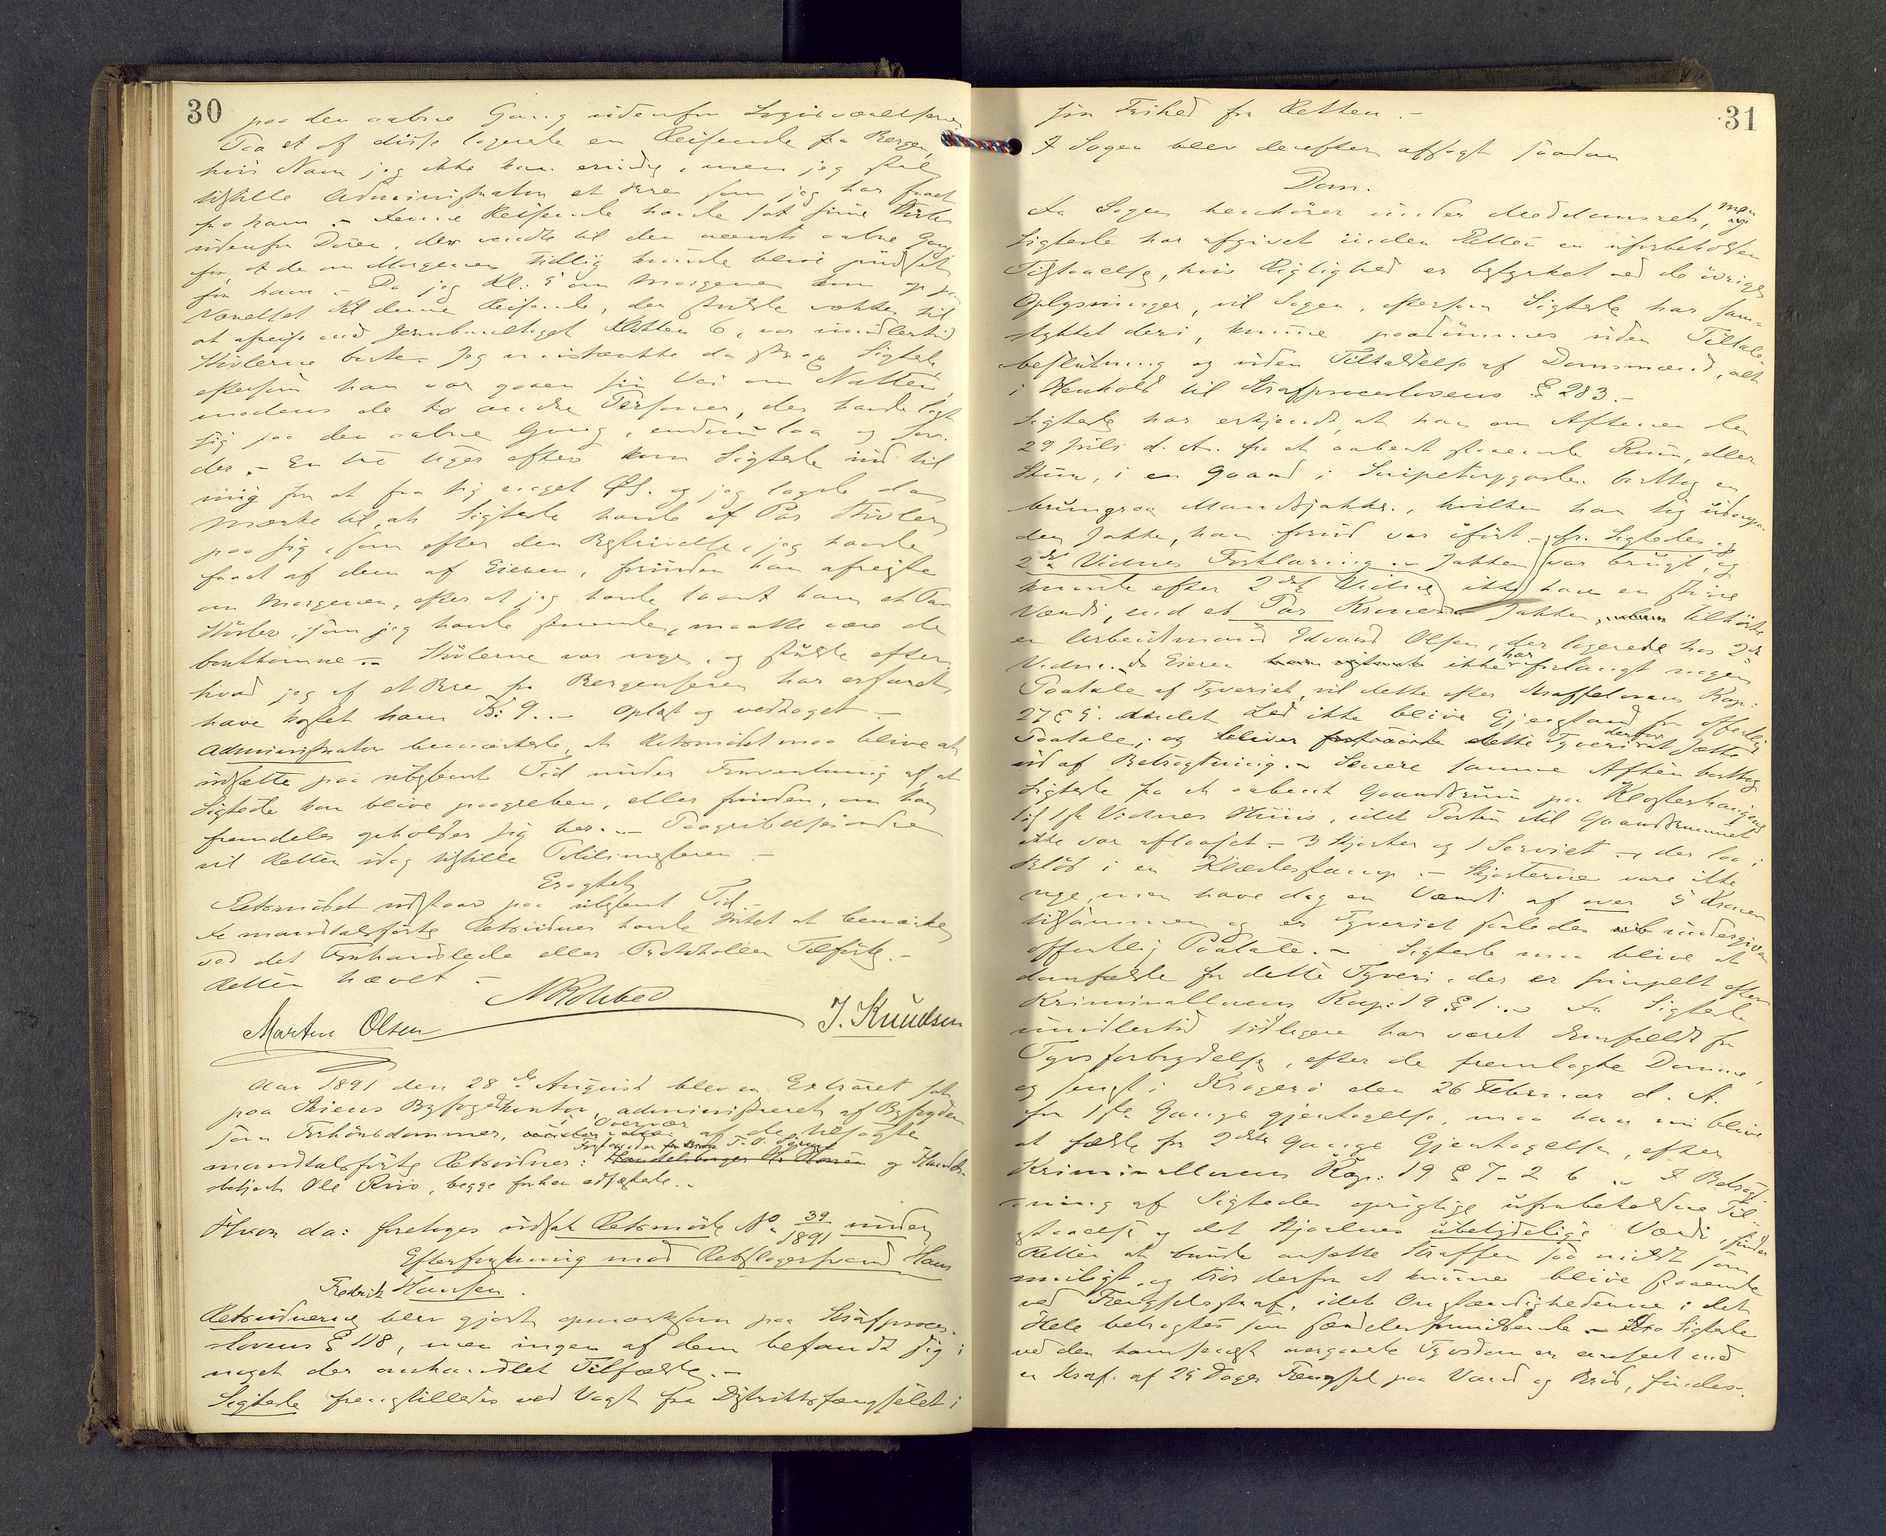 30
paa den aabne Gang udenfor Logisværelserne
Paa et af disse logerede en Reisende fra Bergen,
hvis Navn jeg ikke kan erindre, men jeg skal
tilstille Administrator et Brev som jeg har faaet
fra ham. – Denne Reisende havde sat sine Støvler
udenfor Døren, der vendte til den nævnte aabne Gang
for at de om Morgenen tidlig kunde blive pudset
for ham. – Da jeg Kl: 5 om Morgenen kom op paa
Værelset til denne Reisende, der skulde vækkes til
at afreise med Jernbanetoget Klokken 6, var imidlertid
Støvlerne borte. Jeg mistænkte da strax Sigtede,
eftersom han var gaaen sin Vei om Natten,
medens de to andre Personer, der havde lagt
sig paa den aabne Gang, endnu laa og sov
der. – En tre Uger efter kom Sigtede ind til
mig for at faa sig noget Øl. og jeg lagde da
Mærke til, at Sigtede havde et Par Støvler
paa sig, som efter den Beskrivelse, jeg havde
faaet af dem af Eieren, førinden han afreiste
om Morgenen, efter at jeg havde laant ham et Par
Støvler, som jeg havde staaende, maatte være de
bortkomne. – Støvlerne var nye, og skulde efter,
hvad jeg af et Brev fra Bergenseren har erfaret
have kostet ham Kr: 9. – Oplæst og vedtaget –
Administrator bemærkede, at Retsmødet maa blive at
udsætte paa ubestemt Tid under Forventning af, at
Sigtede kan blive paagreben, eller funden, om han
fremdeles opholder sig her. – Paagribelsesordre
vil Retten idag tilstille Politimesteren. –
Eragtet
Retsmødet udstaar paa ubestemt Tid –
De mandtalsførte Retsvidner havde Intet at bemærke
ved det Forhandlede eller Protokollen Tilførte. –
Retten hævet –
Martin Olsen J. Knudsen
Aar 1891 den 28de August blev en Extraret sat
paa Skiens Byfogedkontor, administreret af Byfogden
som Forhørsdommer, i Overvær af de tilsagte
mandtalsførte Retsvidner: og Handels-
betjent Ole Riis, begge forhen edfæstede. –
Hvor da: foretoges udsat Retsmøde No 39/1891 under
Efterforskning mod Rebslagersvend Hans
Fredrik Hansen.
Retsvidnerne blev gjort opmærksom paa Strafproces-
slovens § 118, men ingen af dem befandt sig i
noget der omhandlet Tilfælde. –
Sigtede fremstilledes ved Vagt fra Distriktsfængselet i
31
sin Frihed for Retten. –
I Sagen blev derefter afsagt saadan
Dom.
Da Sagen henhører under Meddomsret, men
Sigtede har afgivet inden Retten en uforbeholden
Tilstaaelse, hvis Rigtighed er bestyrket ved de øvrige
Oplysninger, vil Sagen, eftersom Sigtede har sam-
tykket deri, kunne paadømmes uden Tiltale-
beslutning og uden Tilkaldelse af Domsmænd, alt
i Henhold til Strafproceslovens § 283. –
Sigtede har erkjendt, at han om Aftenen den
29 Juli d. A. fra et aabent staaende Rum, eller
Skur, i en Gaard i Snipetorpgaden borttog en
brungraa Mandsjakke, hvilken han tog udenpaa
den Jakke, han forud var iført – cfr. Sigtedes og
2det Vidnes Forklaring. – Jakken var brugt, og
kunde efter 2det Vidne ikke have en større
Værdi, end et Par Kroner. Jakken, tilhørte
en Arbeidsmand Edvard Olsen, der logerede hos 2det
Vidne. Da Eieren ikke har forlangt nogen
Paatale af Tyveriet, vil dette efter Straffelovens Kap:
27 § 5. andet Led ikke blive Gjenstand for offentlig
Paatale, og bliver dette Tyveri derfor at sætte
ud af Betragtning. – Senere samme Aften borttog
Sigtede fra et aabent Gaardsrum paa Klosterhaugen
til 1ste Vidnes Huus, idet Porten til Gaardsrummet
ikke var aflaaset – 3 Skjorter og 1 Serviet – der laa i
Blød i en Klædestamp. – Skjorterne vare ikke
nye, men have dog en Værdi af over 5 Kroner
tilsammen og er Tyveriet saaledes undergiven
offentlig Paatale. – Sigtede maa blive at
domfælde for dette Tyveri, der er simpelt efter
Kriminallovens Kap: 19 § 1. – Da Sigtede
imidlertid tidligere har været domfældt for
Tyvsforbrydelse, efter de fremlagte Domme,
og senest i Kragerø den 26 Februar d. A.
for 1ste Gangs Gjentagelse, maa han nu blive
at fælde for 2den Gangs Gjentagelse, efter
Kriminallovens Kap: 19 § 7 – 2 b – I Betragt-
ning af Sigtedes oprigtige uforbeholdne Til-
staaelse og det Stjaalnes ubetydelige Værdi, finder
Retten at burde ansætte Straffen saa mildt som
muligt, og tror derfor at kunne blive staaende
ved Fængselsstraf, idet Omstændighederne i det
Hele betragtes som særdeles formildende. – Sigtede
ved den ham senest overgaaede Tyvsdom er anseet med
en Straf af 25 Dages Fængsel paa Vand og Brød, findes